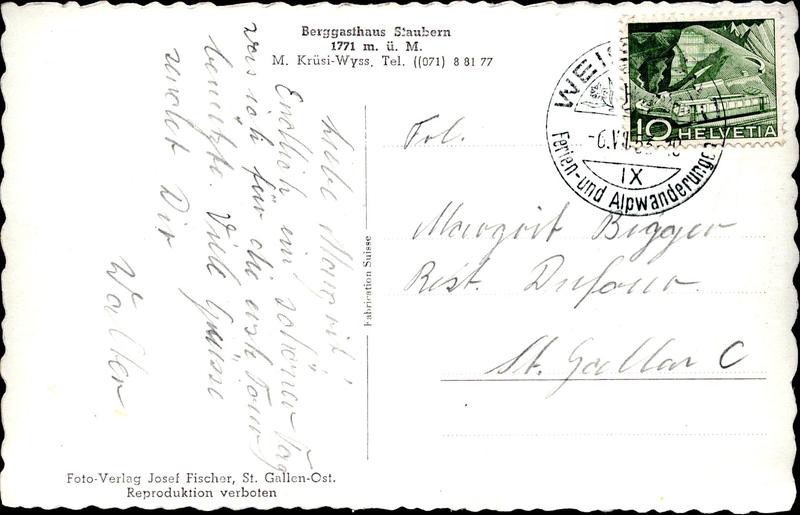 Berggasthaus Staubern
1771 m. ü. M.
M. Krüsi-Wyss, Tel. ((071) 8 81 77
Liebe Margrit!
Endlich ein schöner Tag
was ich für die erste Tour
benutzte. Viele Grüsse
sendet Dir
Walter
Fabrication Suisse
Foto-Verlag Josef Fischer, St. Gallen-Ost.
Reproduktion verboten
10 HELVETIA
IX
Ferien- und Alpwanderungen
Frl.
Margrit Bigger
Rest. Dufour
St. Gallen C